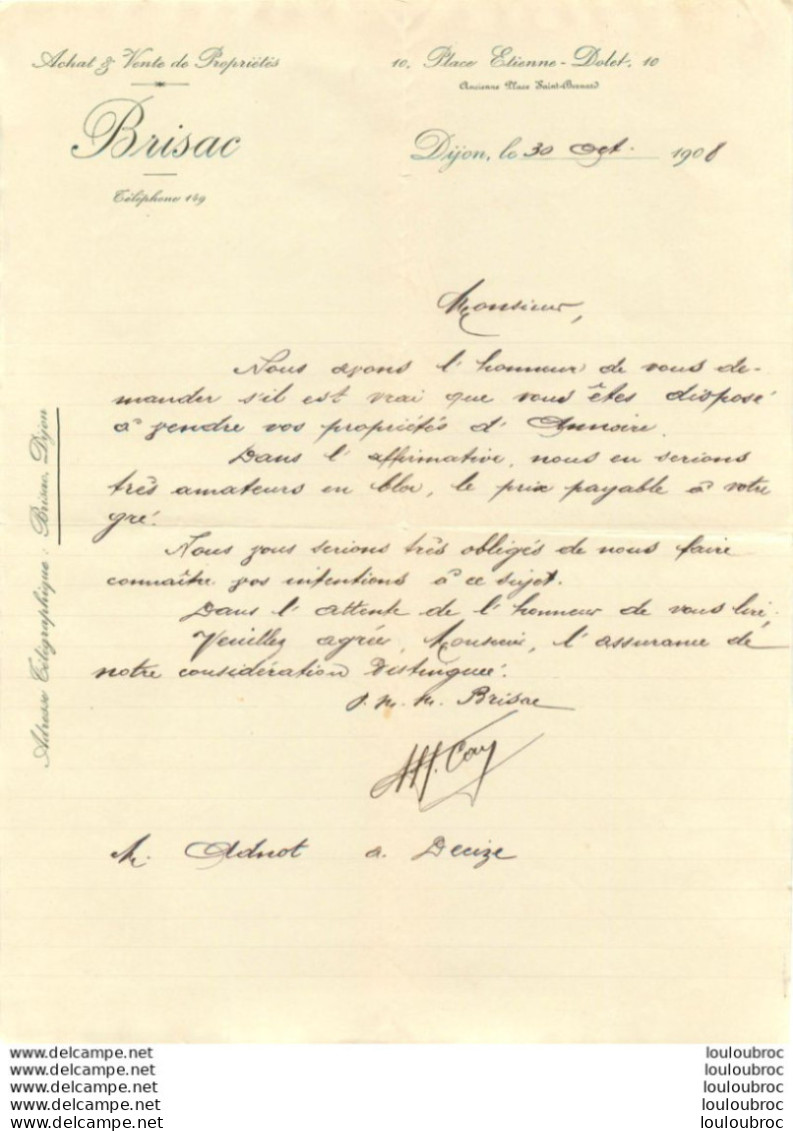 Achat & Vente de Propriétés
Brisac
Téléphone 149
10, Place Etienne-Dolet, 10
Ancienne Place Saint-Bernard
Dijon, le 30 Oct. 1908
Adresse Télégraphique: Brisac, Dijon
Monsieur,
Nous avons l'honneur de vous de-
mander s'il est vrai que vous êtes disposé
à vendre vos propriétés d'Annoire.
Dans l'affirmative, nous en serions
très amateurs en bloc, le prix payable à votre
gré.
Nous vous serions très obligés de nous faire
connaître vos intentions à ce sujet.
Dans l'attente de l'honneur de vous lire,
Veuillez agréer, Monsieur, l'assurance de
notre considération distinguée.
Brisac
M. Adnot a Decize
www.delcampe.net
www.delcampe.net
www.delcampe.net
www.delcampe.net
www.delcampe.net
louloubroc
louloubroc
louloubroc
louloubroc
louloubroc